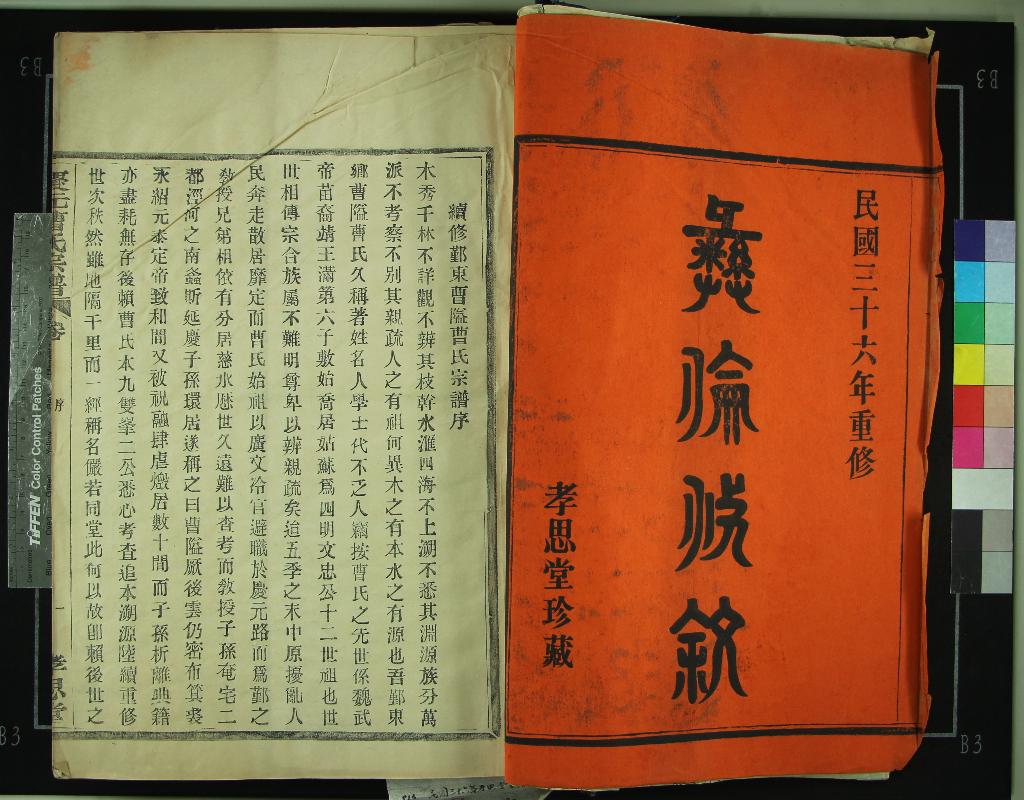 民國三十六年重修
彝倫攸敘
孝思堂珍藏
續修鄞東曹隘曹氏宗譜序
木秀千林不詳觀不辨其枝幹水滙四海不上溯不悉其淵源族分萬
派不考察不別其親疏人之有祖何異木之有本水之有源也吾鄞東
鄉曹隘曹氏久稱著姓名人學士代不乏人竊按曹氏之先世係魏武
帝苗裔靖王滿第六子敷始喬居姑蘇爲四明文忠公十二世祖也世
世相傳宗合族屬不難明尊卑以辨親疏矣迨五季之末中原擾亂人
民奔走散居靡定而曹氏始祖以廣文冷官避職於慶元路而爲鄞之
敎授兄弟相依有分居慈水歷世久遠難以查考而敎授子孫奄宅二
都涇河之南螽斯延慶子孫環居遂稱之曰曹隘厥後雲仍密布箕裘
永紹元泰定帝致和間又被祝融肆虐燬居數十間而子孫析離典籍
亦盡耗無存後賴曹氏本九雙峯二公悉心考查追本溯源陸續重修
世次秩然雖地隔千里而一經稱名儼若同堂此何以故卽賴後世之
曹氏宗譜
卷
序
一
孝思堂
TIFFEN Color Control Patches
B3
B3
B3
B3